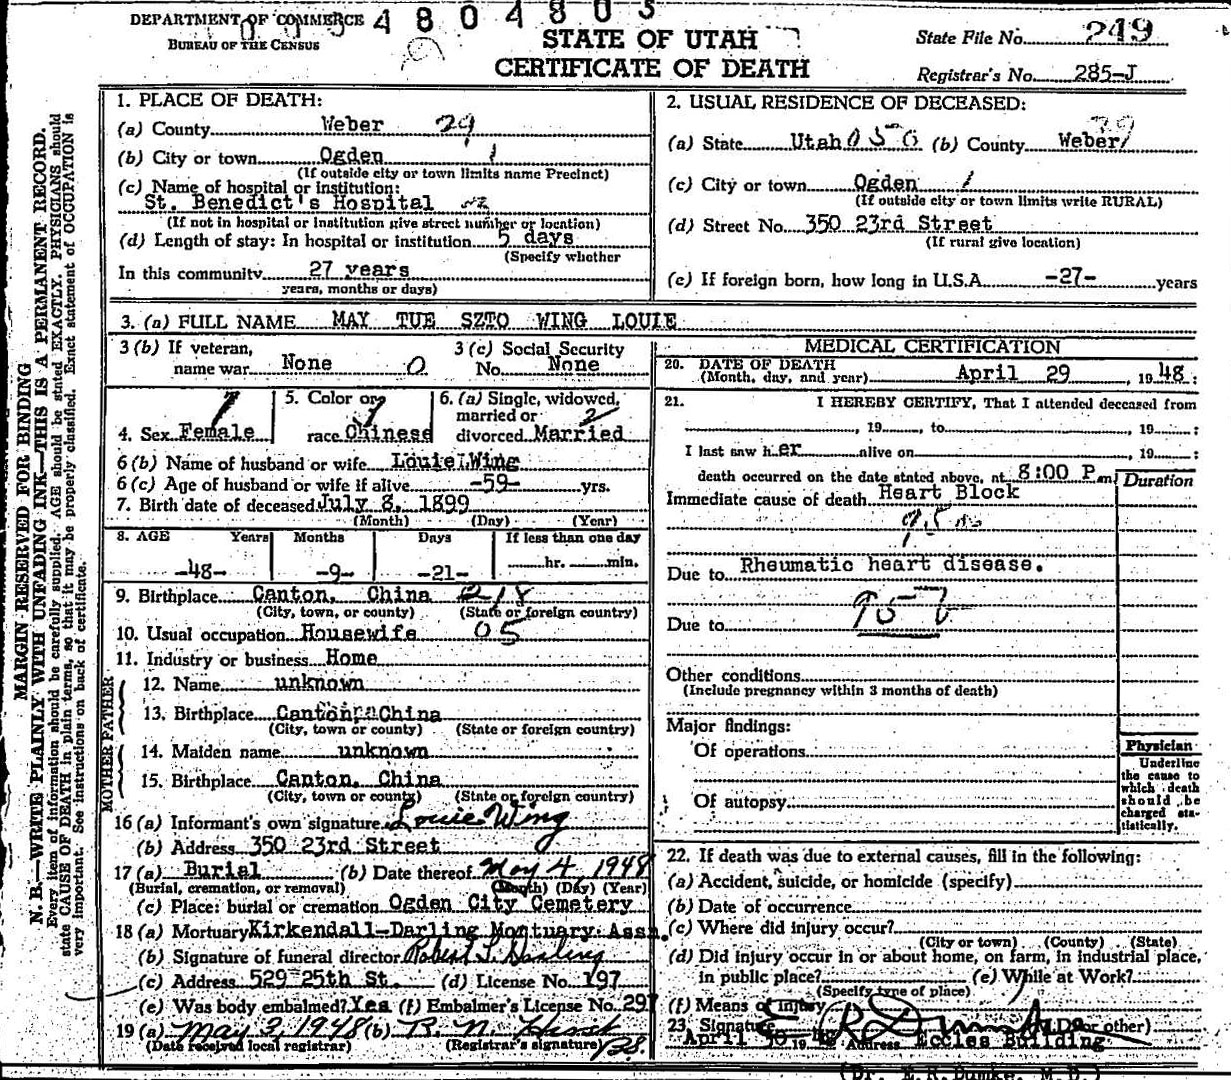 DEPARTMENT OF COMMERCE
BUREAU OF THE CENSUS
4804803
STATE OF UTAH
CERTIFICATE OF DEATH
State File No. 249
Registrar's No. 285-J
MARGIN RESERVED FOR BINDING
N. B.—WRITE PLAINLY WITH UNFADING INK—THIS IS A PERMANENT RECORD.
Every item of information should be carefully supplied. AGE should be stated EXACTLY. PHYSICIANS should
state CAUSE OF DEATH in plain terms, so that it may be properly classified. Exact statement of OCCUPATION is
very important. See instructions on back of certificate.
1. PLACE OF DEATH:
(a) County Weber 29
(b) City or town Ogden 1
(If outside city or town limits name Precinct)
(c) Name of hospital or institution:
St. Benedict's Hospital
(If not in hospital or institution give street number or location)
(d) Length of stay: In hospital or institution 5 days
(Specify whether
In this community 27 years
years, months or days)
2. USUAL RESIDENCE OF DECEASED:
(a) State Utah 050 (b) County Weber 29
(c) City or town Ogden 1
(If outside city or town limits write RURAL)
(d) Street No. 350 23rd Street
(If rural give location)
(e) If foreign born, how long in U.S.A. -27- years
3. (a) FULL NAME MAY TUE SZTO WING LOUIE
3 (b) If veteran, name war None 0
3 (c) Social Security No. None
4. Sex Female
5. Color or race Chinese
6. (a) Single, widowed, married or divorced Married 2
6 (b) Name of husband or wife Louie Wing
6 (c) Age of husband or wife if alive -59- yrs.
7. Birth date of deceased July 8, 1899
(Month) (Day) (Year)
8. AGE Years Months Days If less than one day
-48- -9- -21- hr. min.
9. Birthplace Canton, China
(City, town, or county) (State or foreign country)
10. Usual occupation Housewife 05
11. Industry or business Home
FATHER
12. Name unknown
13. Birthplace Canton, China
(City, town or county) (State or foreign country)
MOTHER
14. Maiden name unknown
15. Birthplace Canton, China
(City, town or county) (State or foreign country)
16 (a) Informant's own signature Louie Wing
(b) Address 350 23rd Street
17 (a) Burial (b) Date thereof May 4, 1948
(Burial, cremation, or removal) (Month) (Day) (Year)
(c) Place: burial or cremation Ogden City Cemetery
18 (a) Mortuary Kirkendall-Darling Mortuary Assn.
(b) Signature of funeral director Robert L. Darling
(c) Address 529 25th St. (d) License No. 197
(e) Was body embalmed? Yes (f) Embalmer's License No. 297
19 (a) May 3, 1948 (b) R. N. Hirst
(Date received local registrar) (Registrar's signature)
MEDICAL CERTIFICATION
20. DATE OF DEATH
(Month, day, and year) April 29, 1948:
21. I HEREBY CERTIFY, That I attended deceased from
, 19 , to , 19 :
I last saw her alive on , 19 :
death occurred on the date stated above, at 8:00 P.m.
Duration
Immediate cause of death Heart Block
Due to Rheumatic heart disease.
Due to
Other conditions
(Include pregnancy within 3 months of death)
Major findings:
Of operations
Of autopsy
Physician
Underline
the cause to
which death
should be
charged sta-
tistically.
22. If death was due to external causes, fill in the following:
(a) Accident, suicide, or homicide (specify)
(b) Date of occurrence
(c) Where did injury occur?
(City or town) (County) (State)
(d) Did injury occur in or about home, on farm, in industrial place,
in public place? (e) While at Work?
(Specify type of place)
(f) Means of injury
23. Signature E R Dumke (M.D. or other)
April 30 1948 Address Eccles Building
(Dr. E.R.Dumke, M.D.)